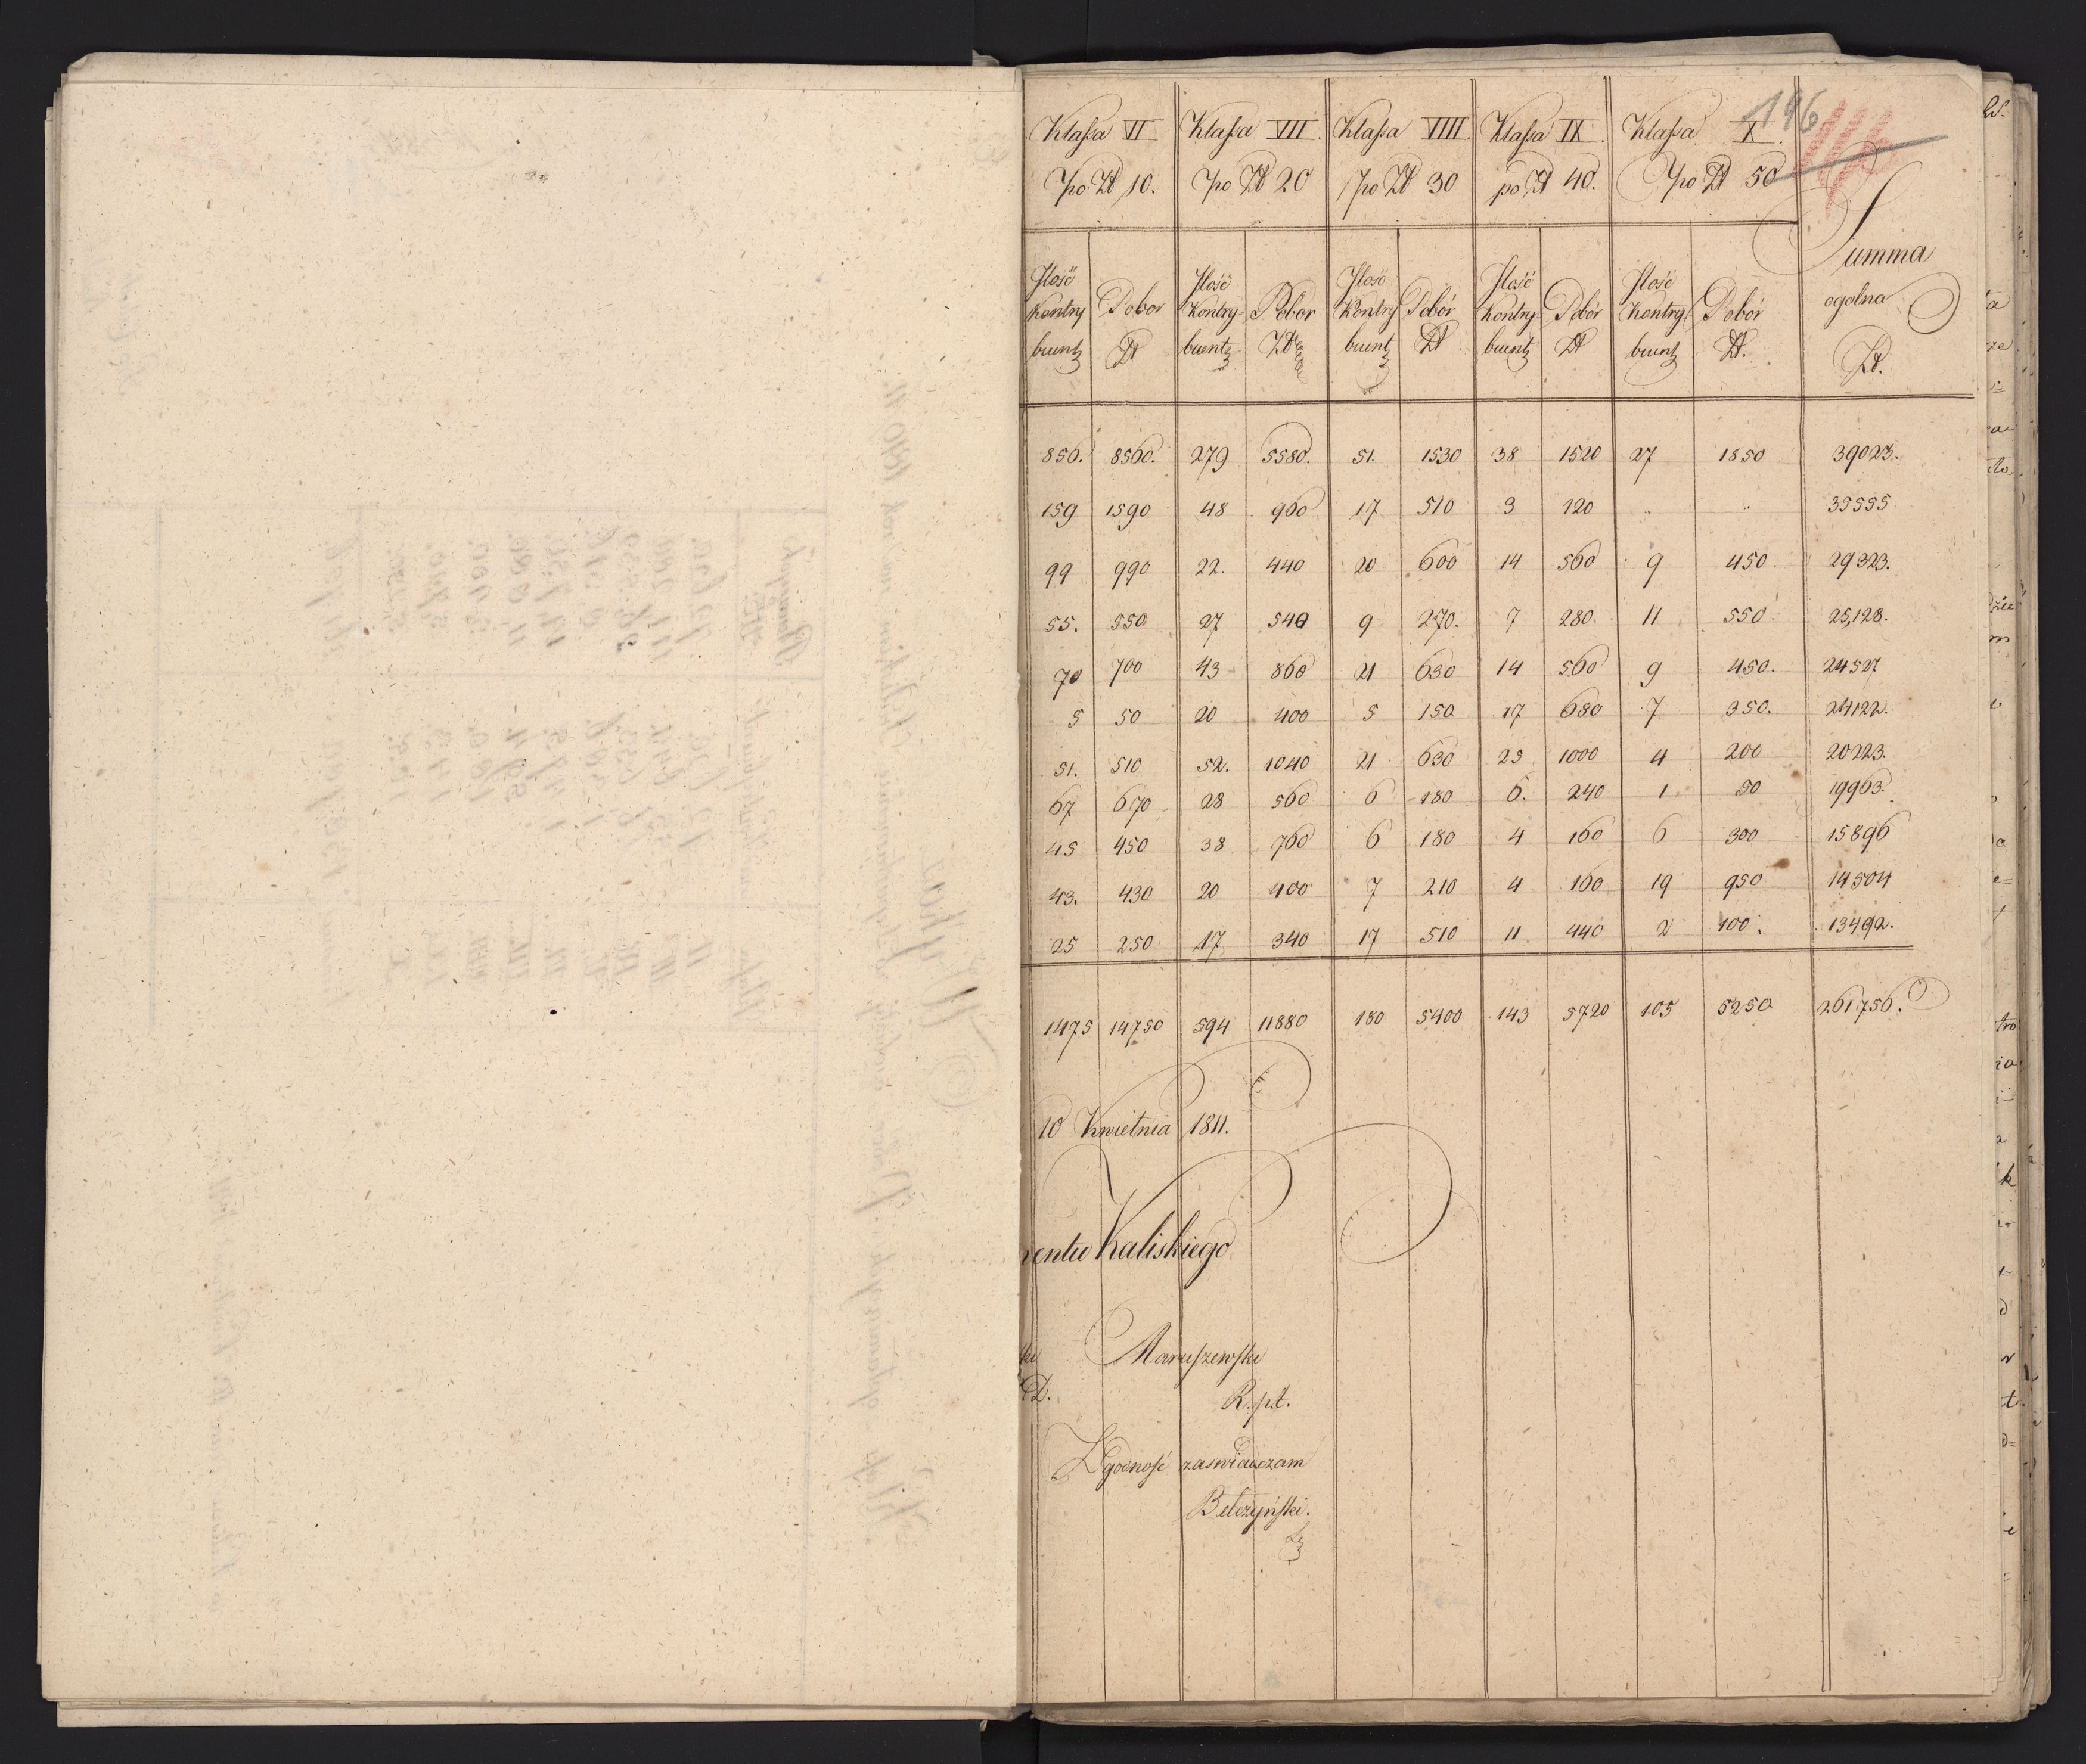 196
Klassa VI Klassa VII. Klassa VIII Klassa IX. Klassa X.
po Zł 10. po Zł 20 po Zł 30 po Zł 40. po Zł 50
Summa
ogolna
Zł.
Jlość Kontrybuentz Pobor Zł Jlość Kontry-buentz Pobor Zł Jlość Kontrybuentz Pobór Zł Jlość Kontry-buentz Pobór Zł Jlość Kontry-buentz Pobór Zł.
856. 8560. 279 5580. 51. 1530 38 1520 27 1850 39023.
159 1590 48 960 17 510 3 120 .. .. 35555
99 990 22. 440 20 600 14 560 9 450. 29323.
55. 550 27 540 9 270. 7 280. 11 550. 25,128.
70 700 43 860 21 630 14 560 9 450. 24527
5 50 20 400 5 150 17 680 7 350. 24122.
51. 510 52. 1040 21 630 25 1000 4 200 20223.
67 670 28 560 6 180 6. 240 1 50 19963.
45 450 38 760 6 180 4 160 6 300 15896
43. 430 20 400 7 210 4 160 19 950 14504
25 250 17 340 17 510 11 440 2 100. 13492.
1475 14750 594 11880 180 5400 143 5720 105 5250 261756.
10 Kwietnia 1811.
entu Kaliskiego
Maruszewski
R.p.t.
Zgodność zaswiadczam
Bełczyński.